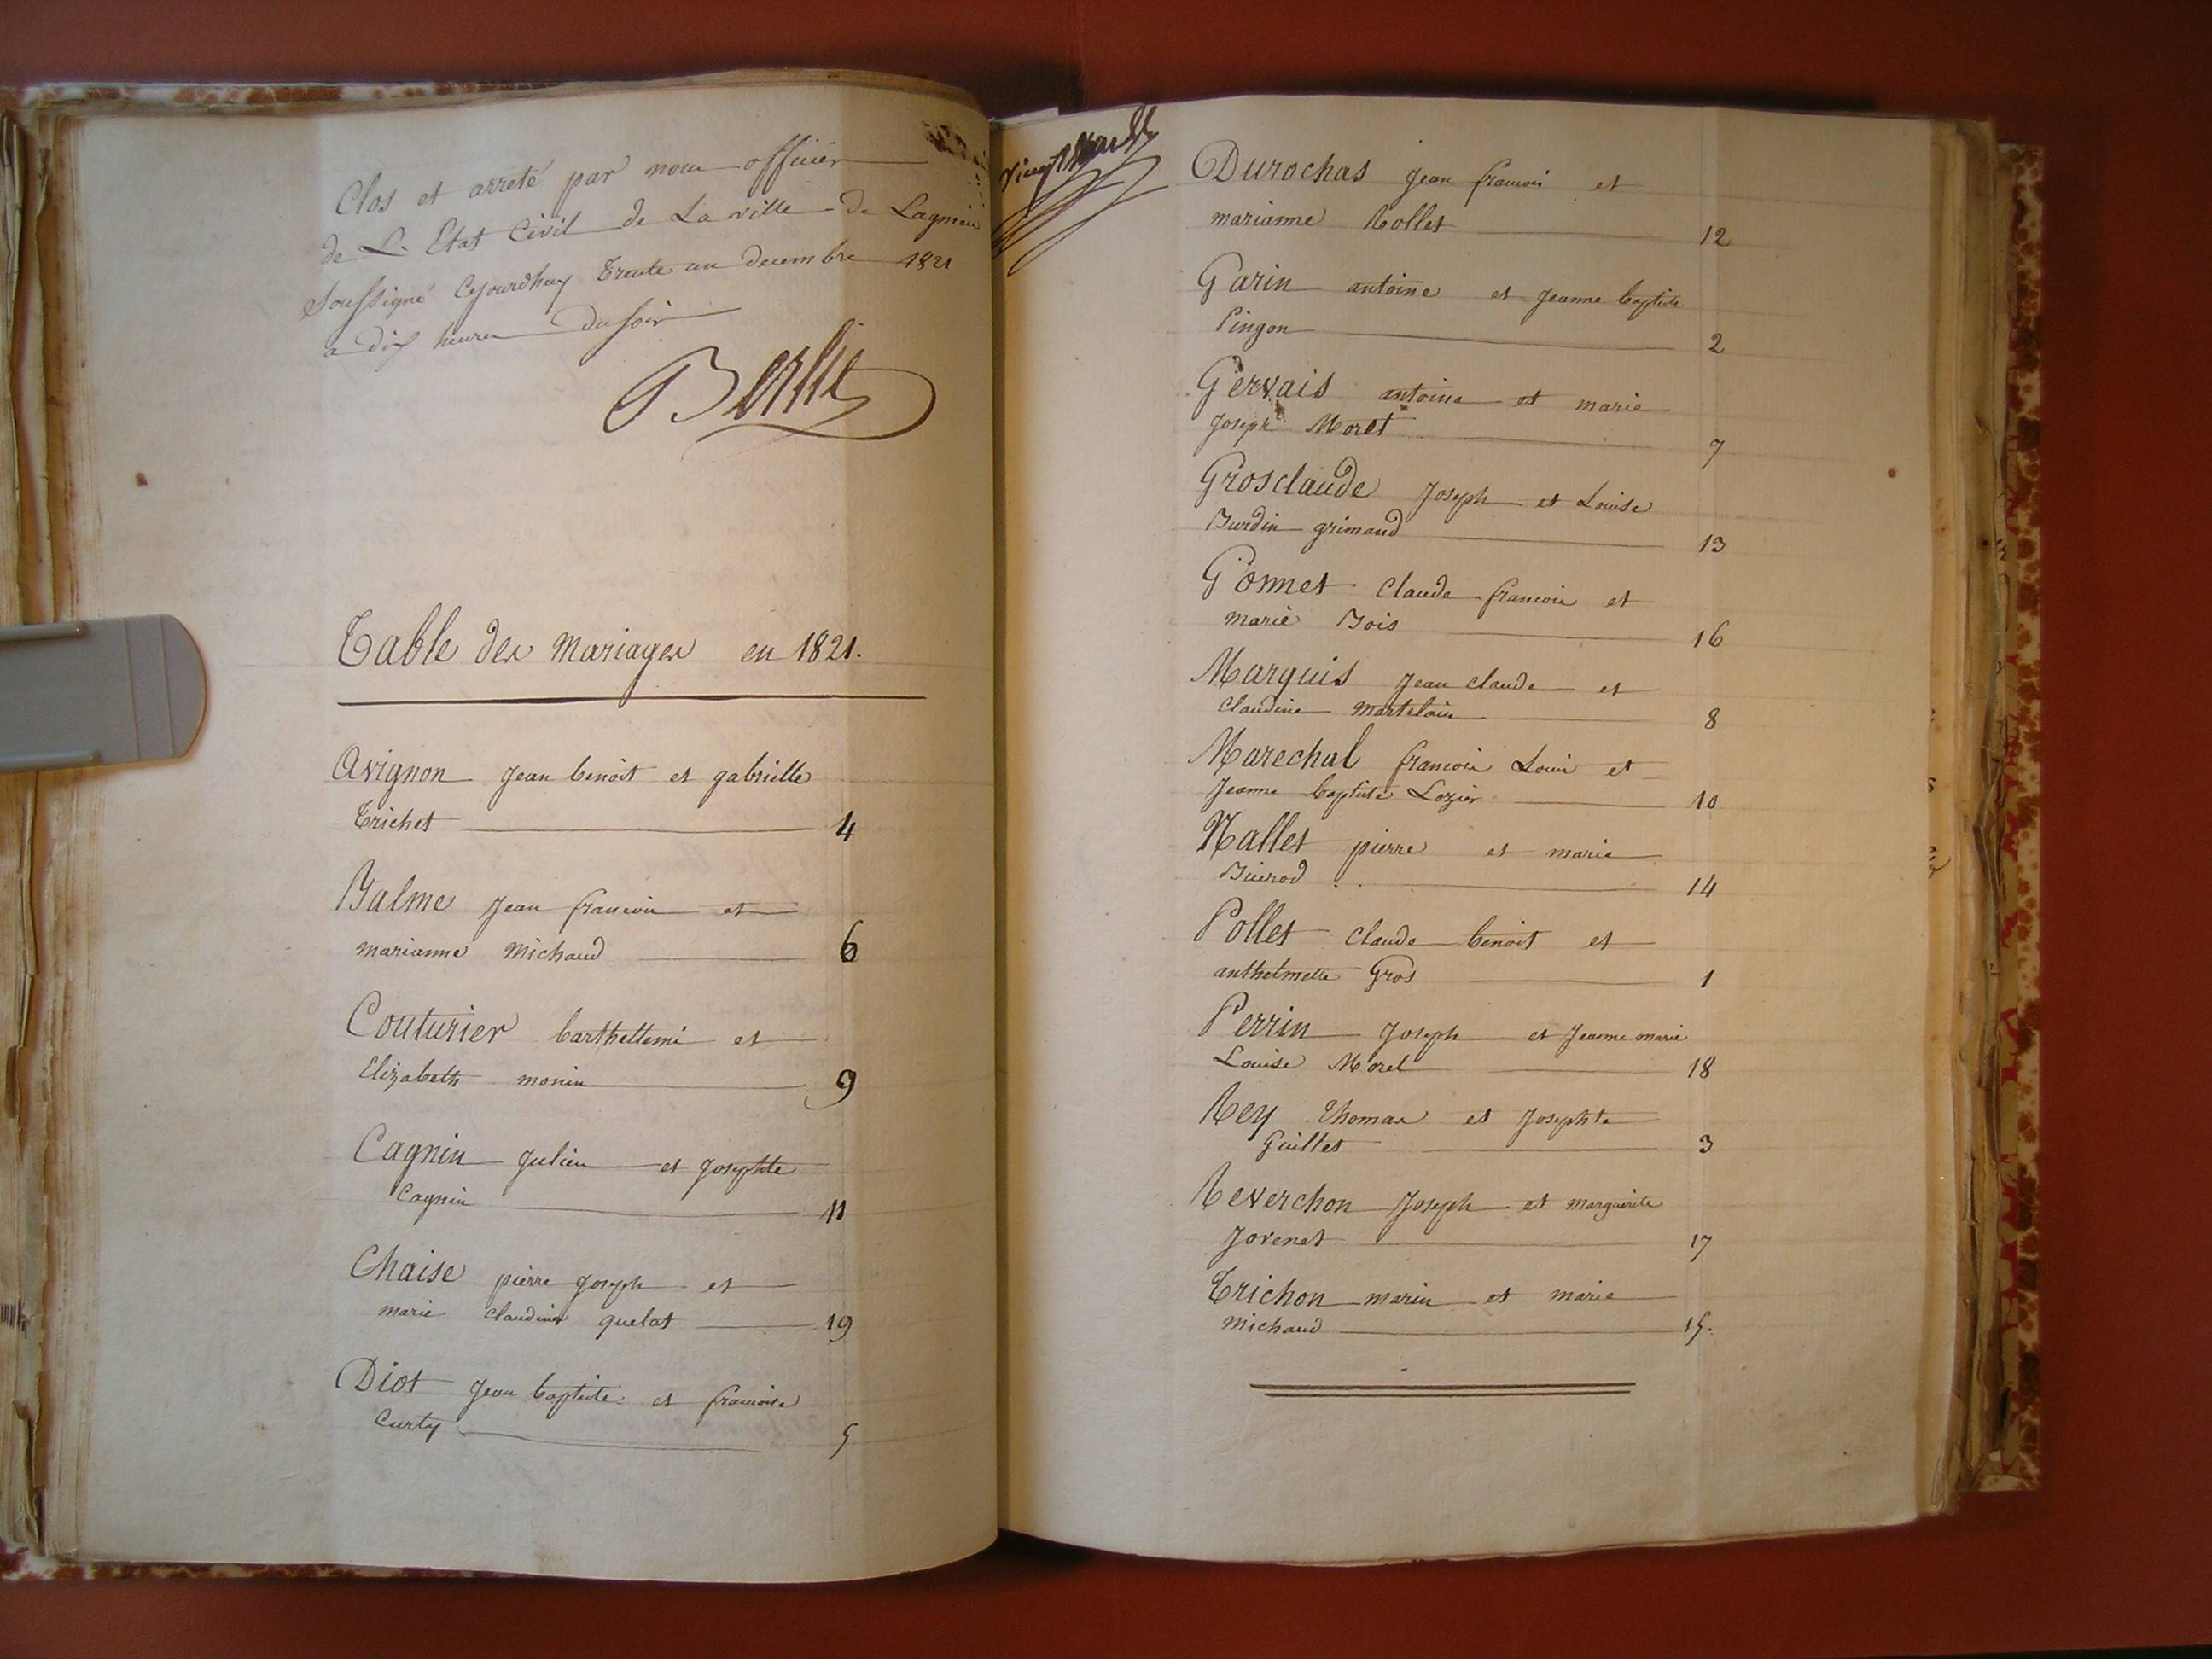 Clos et arreté par nous officier
de L. Etat Civil de La ville de Lagnieu
soussigné Cejourdhuy Trente un decembre 1821
a dix heures du soir
Berlie
Table des Mariages en 1821.
Avignon Jean benoit et gabrielle
Trichet 4
Balme Jean francois et
marianne Michaud 6
Couturier barthellemi et
Elizabeth monin 9
Cagnin Julien et Josephte
Cagnin 11
Chaise pierre Joseph et
marie claudine quelat 19
Diot Jean baptiste et francoise
Curty 5
Durochas Jean francois et
marianne Rollet 12
Garin antoine et Jeanne baptiste
Pingon 2
Gervais antoine et marie
Joseph Moret 7
Grosclaude Joseph et Louise
Burdin grimaud 13
Gonnet Claude francois et
marie Bois 16
Marquis Jean claude et
Claudine Martelain 8
Marechal francois Louis et
Jeanne baptiste Lozier 10
Nallet pierre et marie
14
Pollet claude benoit et
anthelmette Gros 1
Perrin Joseph et Jeanne marie
Louise Morel 18
Rey Thomas et Josephte
Guillet 3
Reverchon Joseph et Marguerite
Jovenet 17
Trichon marin et marie
Michaud 15.